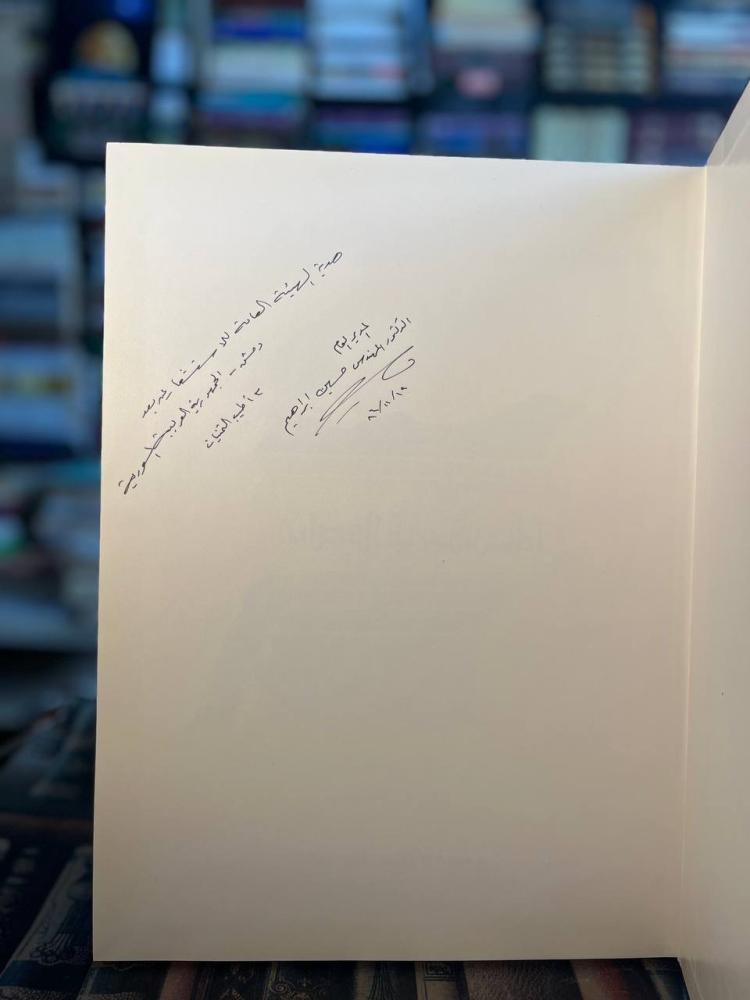 هدية الهيئة العامة للاستشعار عن بعد
دمشق - الجمهورية العربية السورية
مع أطيب التمنيات
المدير العام
الدكتور المهندس حسين ابراهيم